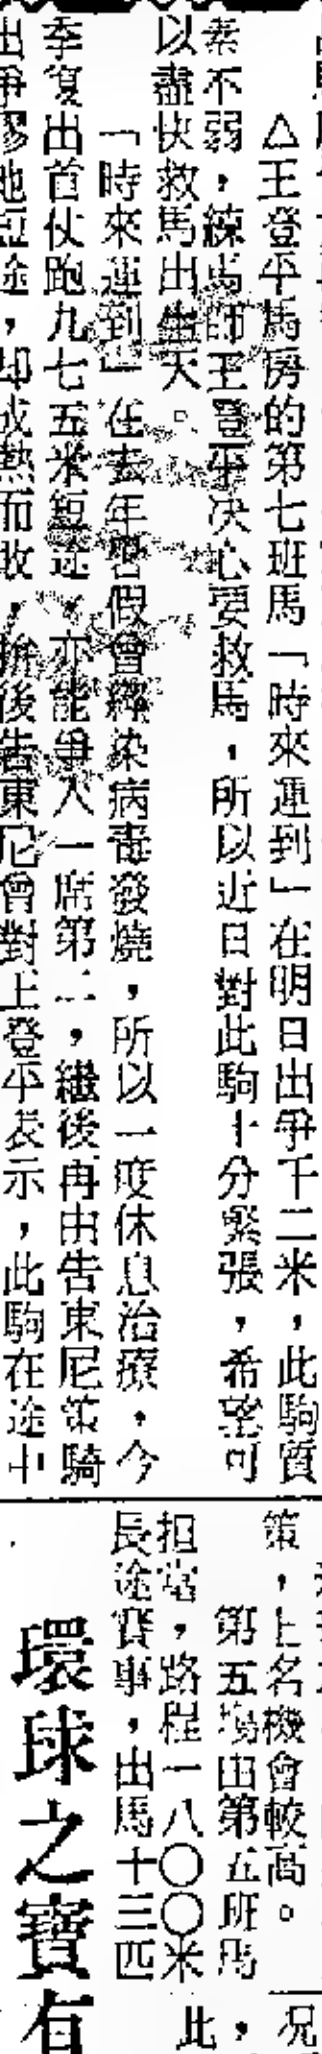 △王登平馬房的第七班馬「時來運到」在明日出爭千二米，此駒質
素不弱，練馬師王登平決心要救馬，所以近日對此駒十分緊張，希望可
以盡快救馬出生天。
「時來運到」在去年暑假曾經染病毒發燒，所以一度休息治療，今
季復出首仗跑九七五米短途，亦能爭入一席第二，繼後再由告東尼策騎
出爭泥地短途，却成熱而敗，賽後告東尼曾對王登平表示，此駒在途中
策，上名機會較高。
第五場由第五班馬
担當，路程一八〇〇米
長途賽事，出馬十三匹
環球之寶有
况
此，